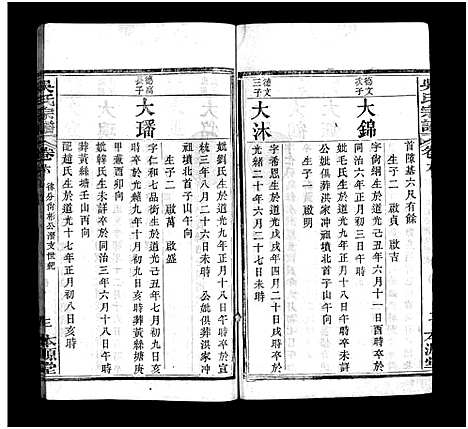 吳氏宗譜
卷六
首隙基六尺有餘
德文次子
大錦
字尚綱生於道光
年六月十一日 時卒於
同治六年正月三十日子時
妣毛氏生於道光十八年
日午時卒年未詳
公妣俱葬洪家冲
塡北首子山午向
生子二 啟貞 啟吉
德文三子
大沐
字希恩生於道光戊戌年四月二十日戌時卒於
光緒二十年二月二十七日未時
生子一 啟明
妣劉氏生於道光九年正月十八日午時卒於宣
統三年八月二十六日未時 公妣俱葬洪家冲
塡北首子山午向
生子二 啟萬 啟盛
德高長子
大璠
字仁和七品銜生於道光己丑年七月初七日
時卒於光緒九年十月初九日亥時葬黃縣塘庚
甲兼酉卯向
妣韓氏生年未詳卒於同治三年六月十八日午時
葬黃縣塘壬山丙向
配趙氏生於道光十七年正月初八日亥時
吳氏宗譜
卷六
徐分尚彬公濳支世紀
三
本源堂
二
本源堂